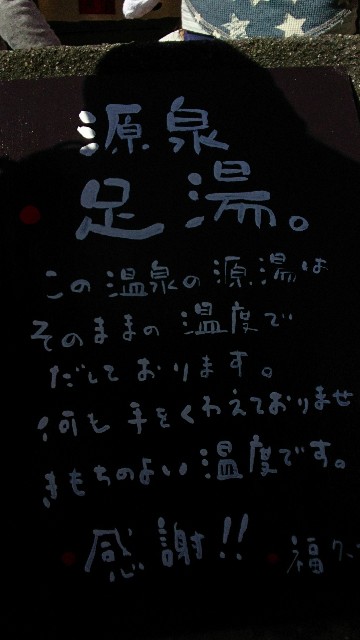 源泉
足湯。
この温泉の源湯は
そのままの温度で
だしております。
何も手をくわえておりませ
きもちのよい温度です。
感謝!!
福